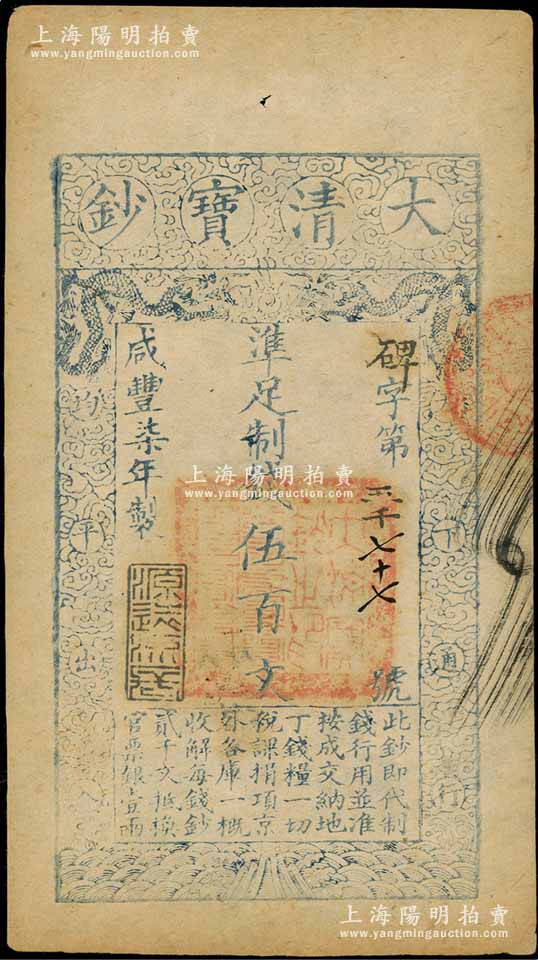 上海陽明拍賣
www.yangmingauction.com
大清寶鈔
碑字第 二千七十七 號
準足制錢伍百文
咸豐柒年製
均平出入
天下通行
源遠流長
此鈔即代制
錢行用並准
按成交納地
丁錢糧一切
稅課捐項京
外各庫一概
收解每錢鈔
貳千文抵換
官票銀壹兩
上海陽明拍賣
www.yangmingauction.com
上海陽明拍賣
www.yangmingauction.com